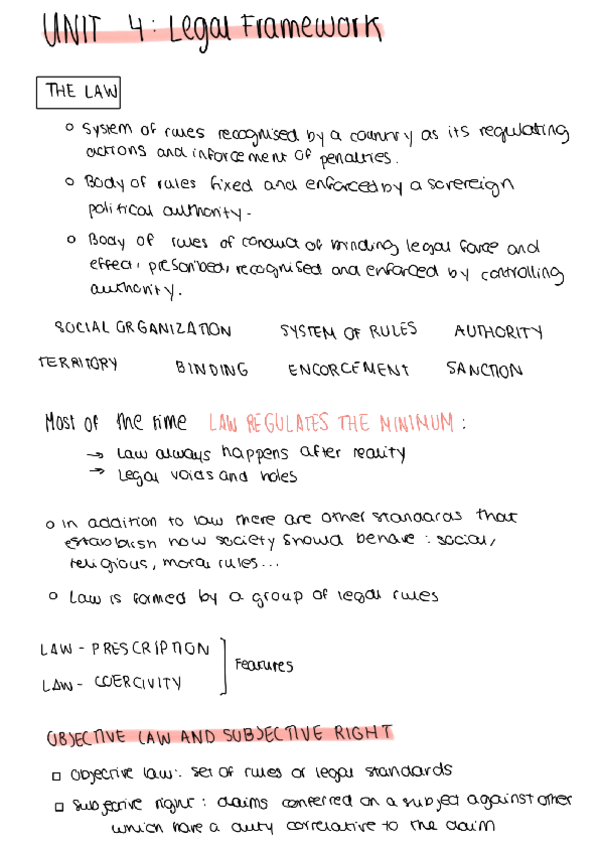 UNIT 4: Legal Framework
THE LAW
System of rules recognised by a country as its regulating
actions and inforcement of penalties.
Body of rules fixed and enforced by a sovereign
political authority.
Body of rules of conduct of binding legal force and
effect, prescribed, recognised and enforced by controlling
authority.
SOCIAL ORGANIZATION SYSTEM OF RULES AUTHORITY
TERRITORY BINDING ENCORCEMENT SANCTION
Most of the time LAW REGULATES THE MINIMUM:
→ Law always happens after reality
→ Legal voids and holes
In addition to law there are other standards that
establish how society should behave: social,
religious, moral rules...
Law is formed by a group of legal rules
LAW - PRESCRIPTION
Features
LAW - COERCIVITY
OBJECTIVE LAW AND SUBJECTIVE RIGHT
Objective law: set of rules or legal standards
Subjective right: claims conferred on a subject against other
which have a duty correlative to the claim